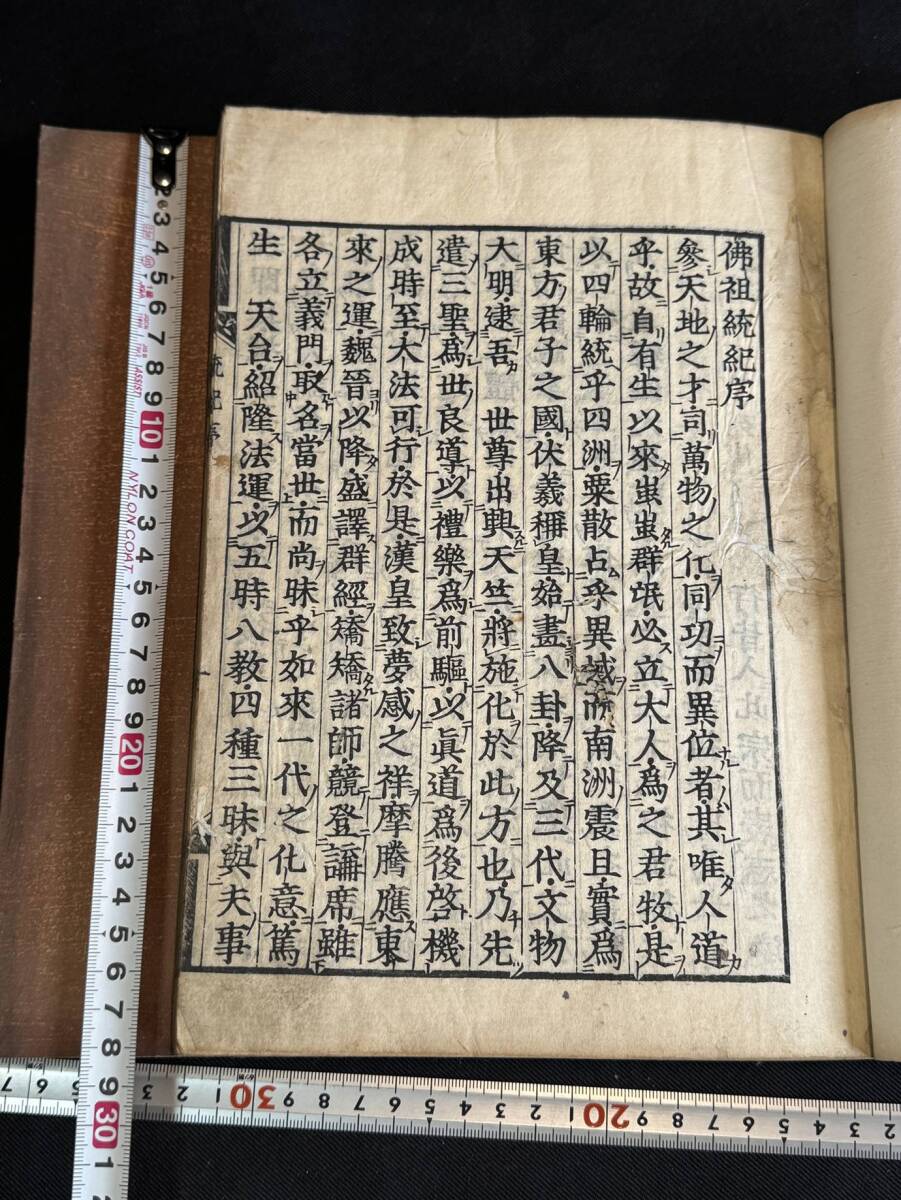 佛祖統紀序
參天地之才司萬物之化同功而異位者其唯人道
乎故自有生以來蚩蚩群氓必立大人為之君牧是
以四輪統乎四洲粟散占乎異域而南洲震旦實為
東方君子之國伏羲稱皇始畫八卦降及三代文物
大明逮吾 世尊出興天竺將施化於此方也乃先
遣三聖為世良導以禮樂為前驅以眞道為後啓機
成時至大法可行於是漢皇致夢感之祥摩騰應東
來之運魏晉以降盛譯群經矯矯諸師競登講席雖
各立義門取名當世而尚昧乎如來一代之化意篤
生 天台紹隆法運以五時八教四種三昧與夫事
統紀序
2 3 4 5 6 7 8 9 10 1 2 3 4 5 6 7 8 9 20 1 2 3 4 5 6 7 8 9 30 1
NYLON COAT
7 6 3 2 1 30 9 8 7 6 5 4 3 2 1 20 9 8 7 6 5 4 3 2